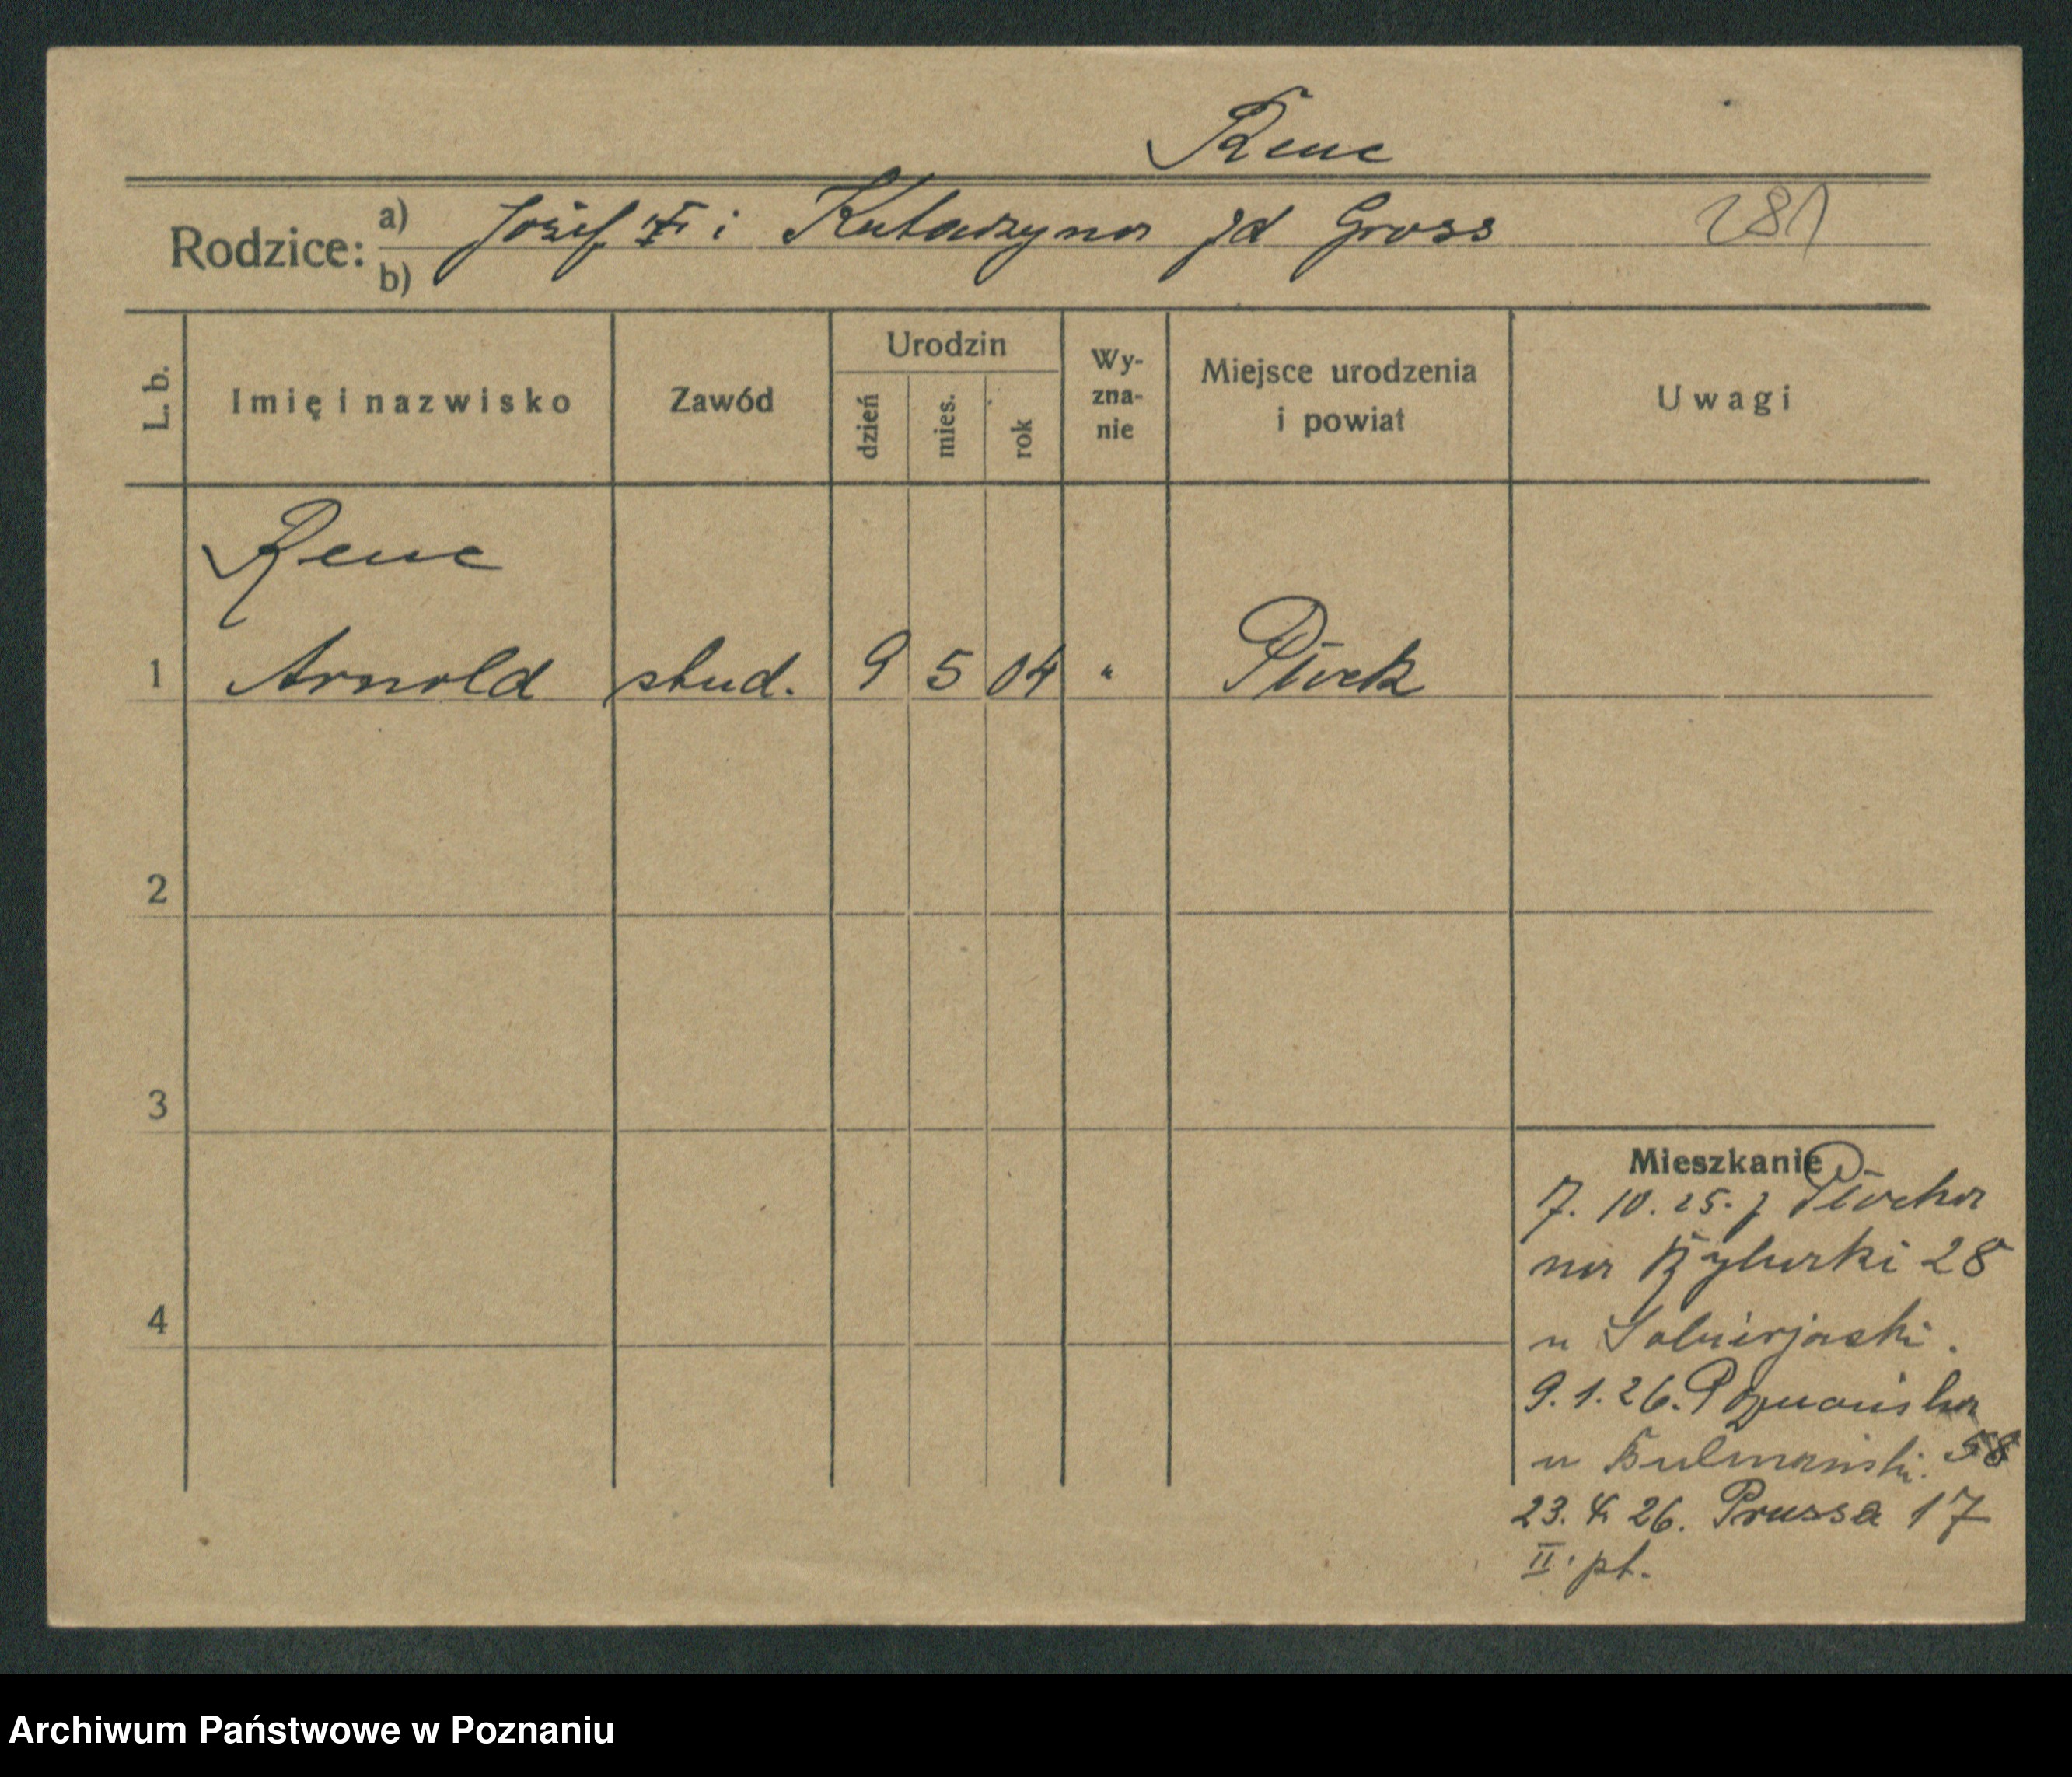 Renc
Rodzice: a) Józef i Katarzyna zd Gross 281
b)
L. b. Imię i nazwisko Zawód Urodzin dzień mies. rok Wy-zna-nie Miejsce urodzenia i powiat Uwagi
Renc
1 Arnold stud. 9 5 04 " Płock
2
3
Mieszkanie
7. 10. 25. z Płocka
na Rybarki 28
4
u Sobierajski.
9. 1. 26. Poznańska
u 58
23. 4 26. Prussa 17
II. pt.
Archiwum Państwowe w Poznaniu